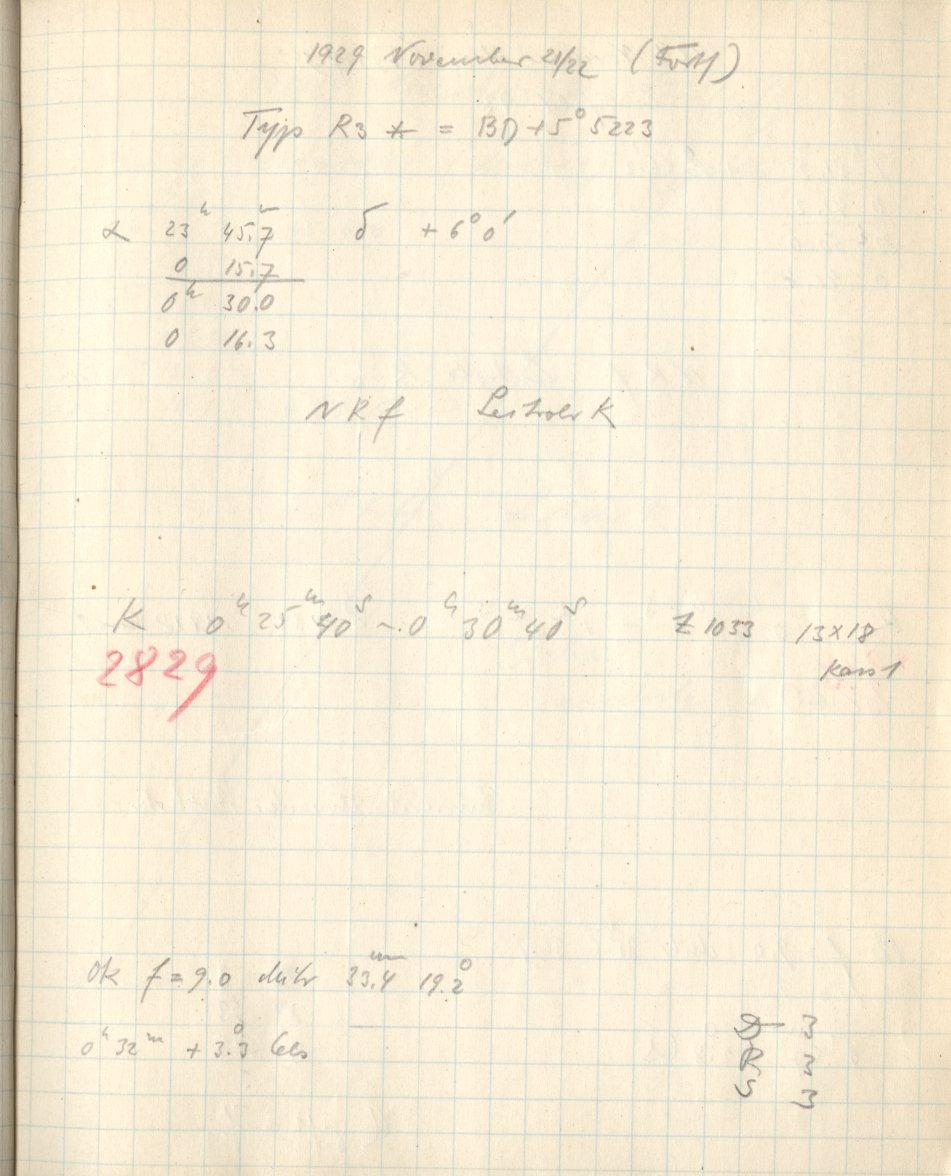 1929 November 21/22 (Forts)
Typ R3 * = BD+5° 5223
α 23ʰ 45.7ᵐ δ +6°0′
0 15.7
0ʰ 30.0
0 16.3
NRf Leitrohr K
K 0ʰ25ᵐ40ˢ – 0ʰ30ᵐ40ˢ Z 1033 13×18
2829 Kass 1
Ok f=9.0 Mikr 33.4ᵐᵐ 19.2°
0ʰ32ᵐ +3.3° Cels
D 3
R 3
S 3